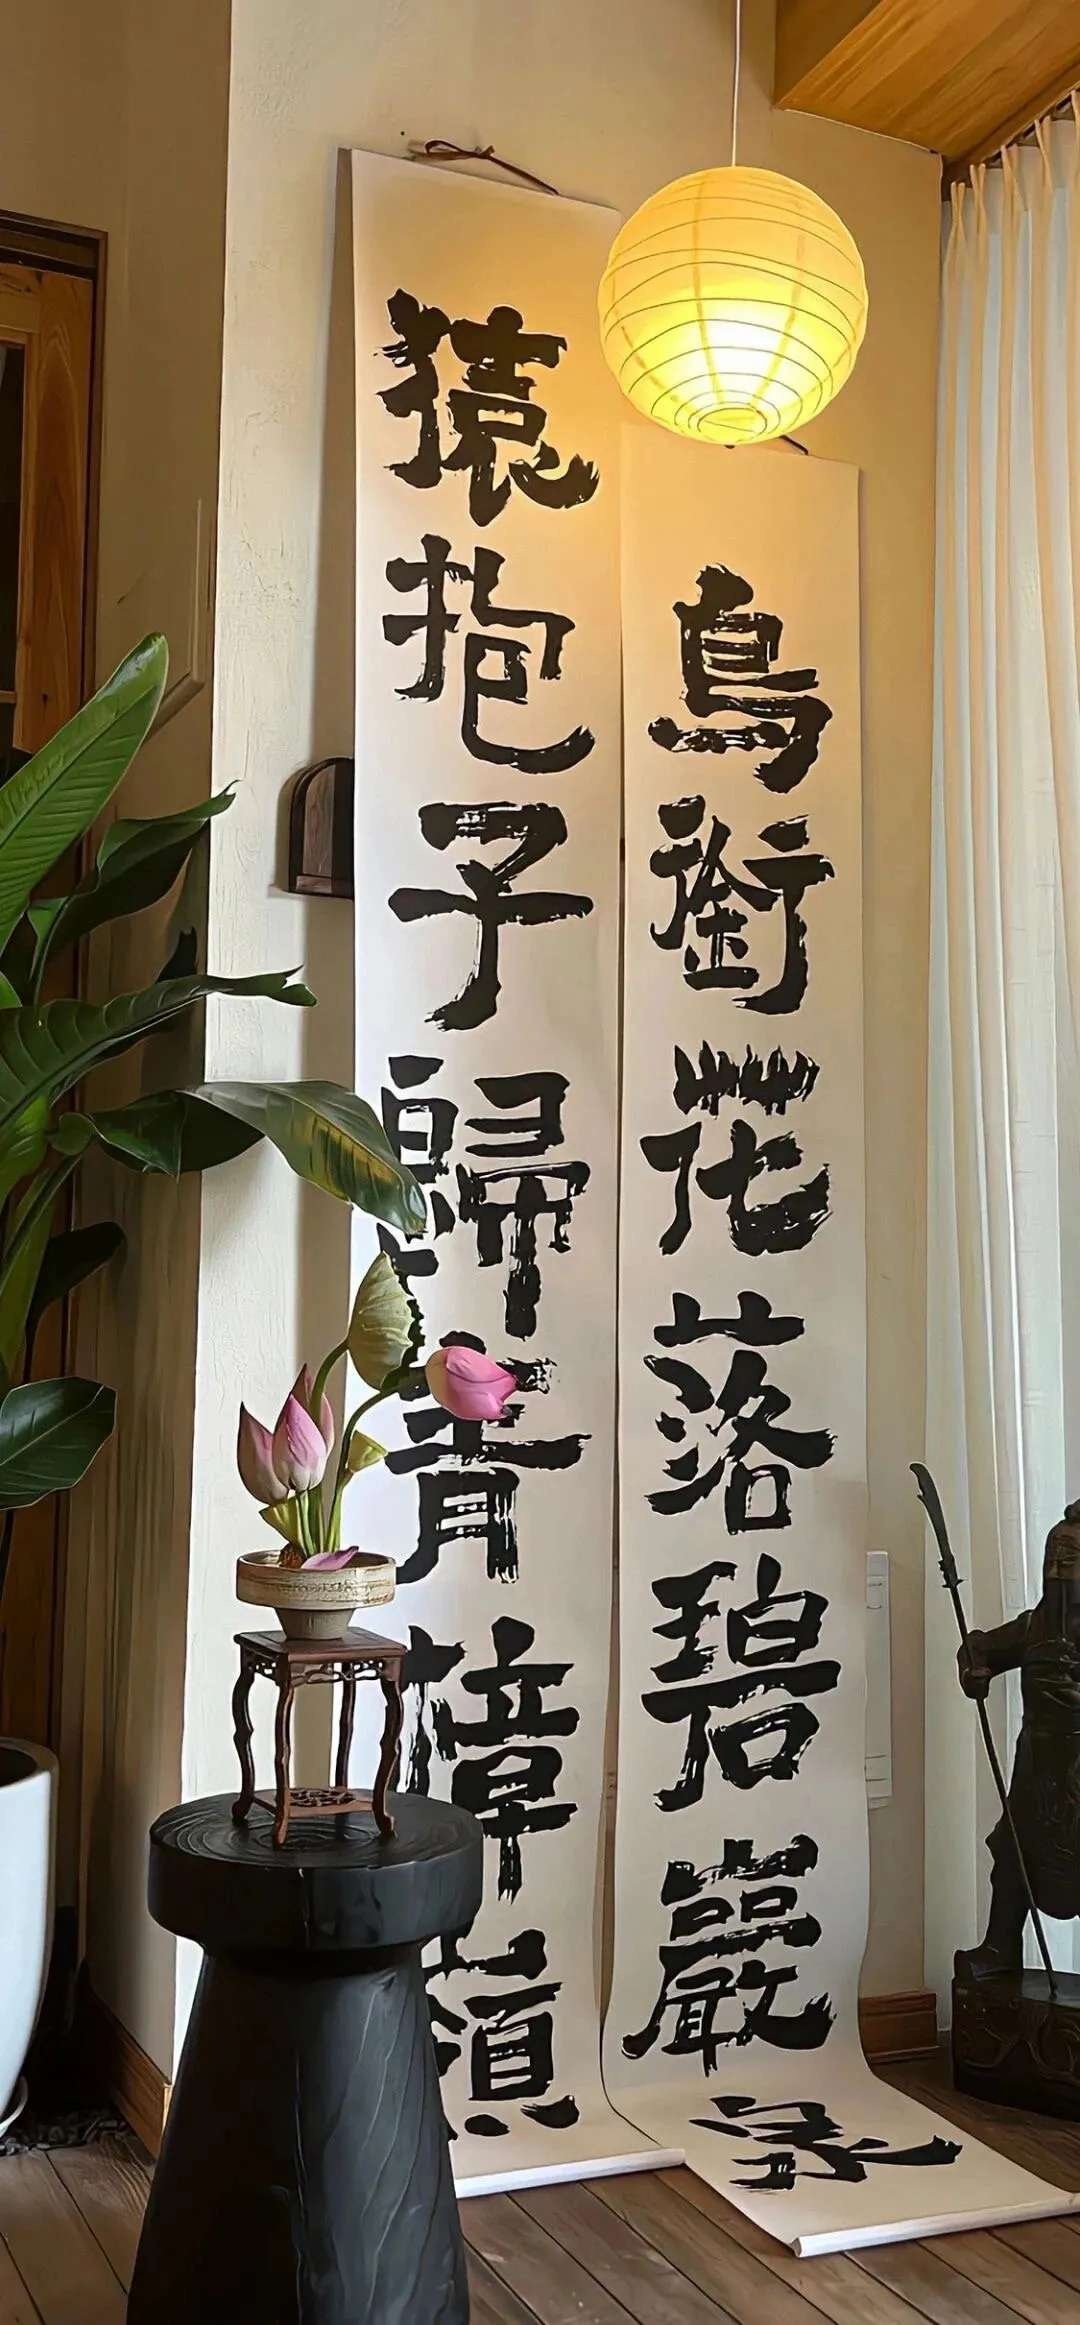 猿抱子歸青樟嶺
鳥銜花落碧巖家